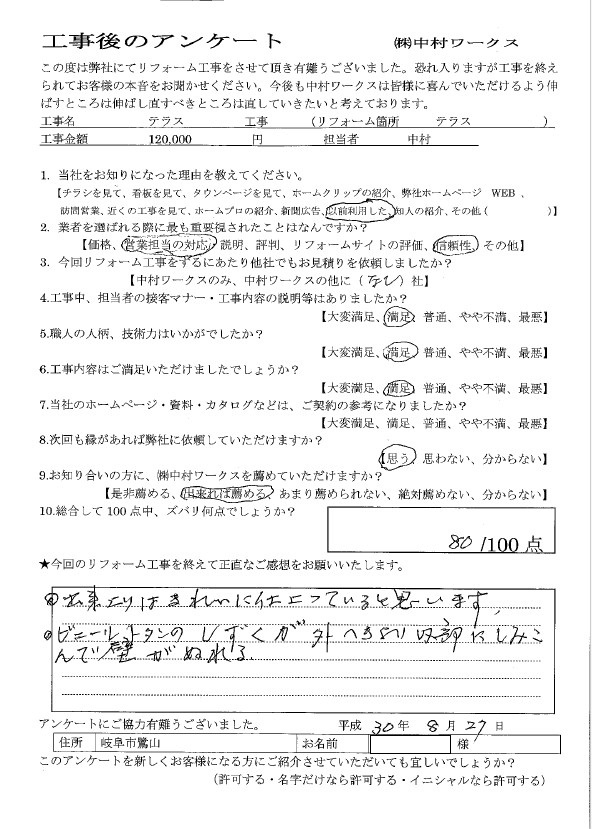 工事後のアンケート ㈱中村ワークス
この度は弊社にてリフォーム工事をさせて頂き有難うございました。恐れ入りますが工事を終え
られてお客様の本音をお聞かせください。今後も中村ワークスは皆様に喜んでいただけるよう伸
ばすところは伸ばし直すべきところは直していきたいと考えております。
工事名 テラス 工事 (リフォーム箇所 テラス )
工事金額 120,000 円 担当者 中村
1．当社をお知りになった理由を教えてください。
【チラシを見て、看板を見て、タウンページを見て、ホームクリップの紹介、弊社ホームページ WEB 、
訪問営業、近くの工事を見て、ホームプロの紹介、新聞広告、以前利用した、知人の紹介、その他 ( )】
2．業者を選ばれる際に最も重要視されたことはなんですか？
【価格、営業担当の対応、説明、評判、リフォームサイトの評価、信頼性、その他】
3．今回リフォーム工事をするにあたり他社でもお見積りを依頼しましたか？
【中村ワークスのみ、中村ワークスの他に ( なし ) 社】
4.工事中、担当者の接客マナー・工事内容の説明等はありましたか？
【大変満足、満足、普通、やや不満、最悪】
5.職人の人柄、技術力はいかがでしたか？
【大変満足、満足、普通、やや不満、最悪】
6.工事内容はご満足いただけましたでしょうか？
【大変満足、満足、普通、やや不満、最悪】
7.当社のホームページ・資料・カタログなどは、ご契約の参考になりましたか？
【大変満足、満足、普通、やや不満、最悪】
8.次回も縁があれば弊社に依頼していただけますか？
【思う、思わない、分からない】
9.お知り合いの方に、㈱中村ワークスを薦めていただけますか？
【是非薦める、出来れば薦める、あまり薦められない、絶対薦めない、分からない】
10.総合して 100 点中、ズバリ何点でしょうか？
80 /100 点
★今回のリフォーム工事を終えて正直なご感想をお願いいたします。
出来上りはきれいに仕上っていると思います。
ビニールトタンのしずくが外へ 内部にしみこ
んで壁がぬれる
アンケートにご協力有難うございました。 平成 30 年 8 月 27 日
住所 岐阜市鷺山 お名前 様
このアンケートを新しくお客様になる方にご紹介させていただいても宜しいでしょうか？
(許可する・名字だけなら許可する・イニシャルなら許可する)